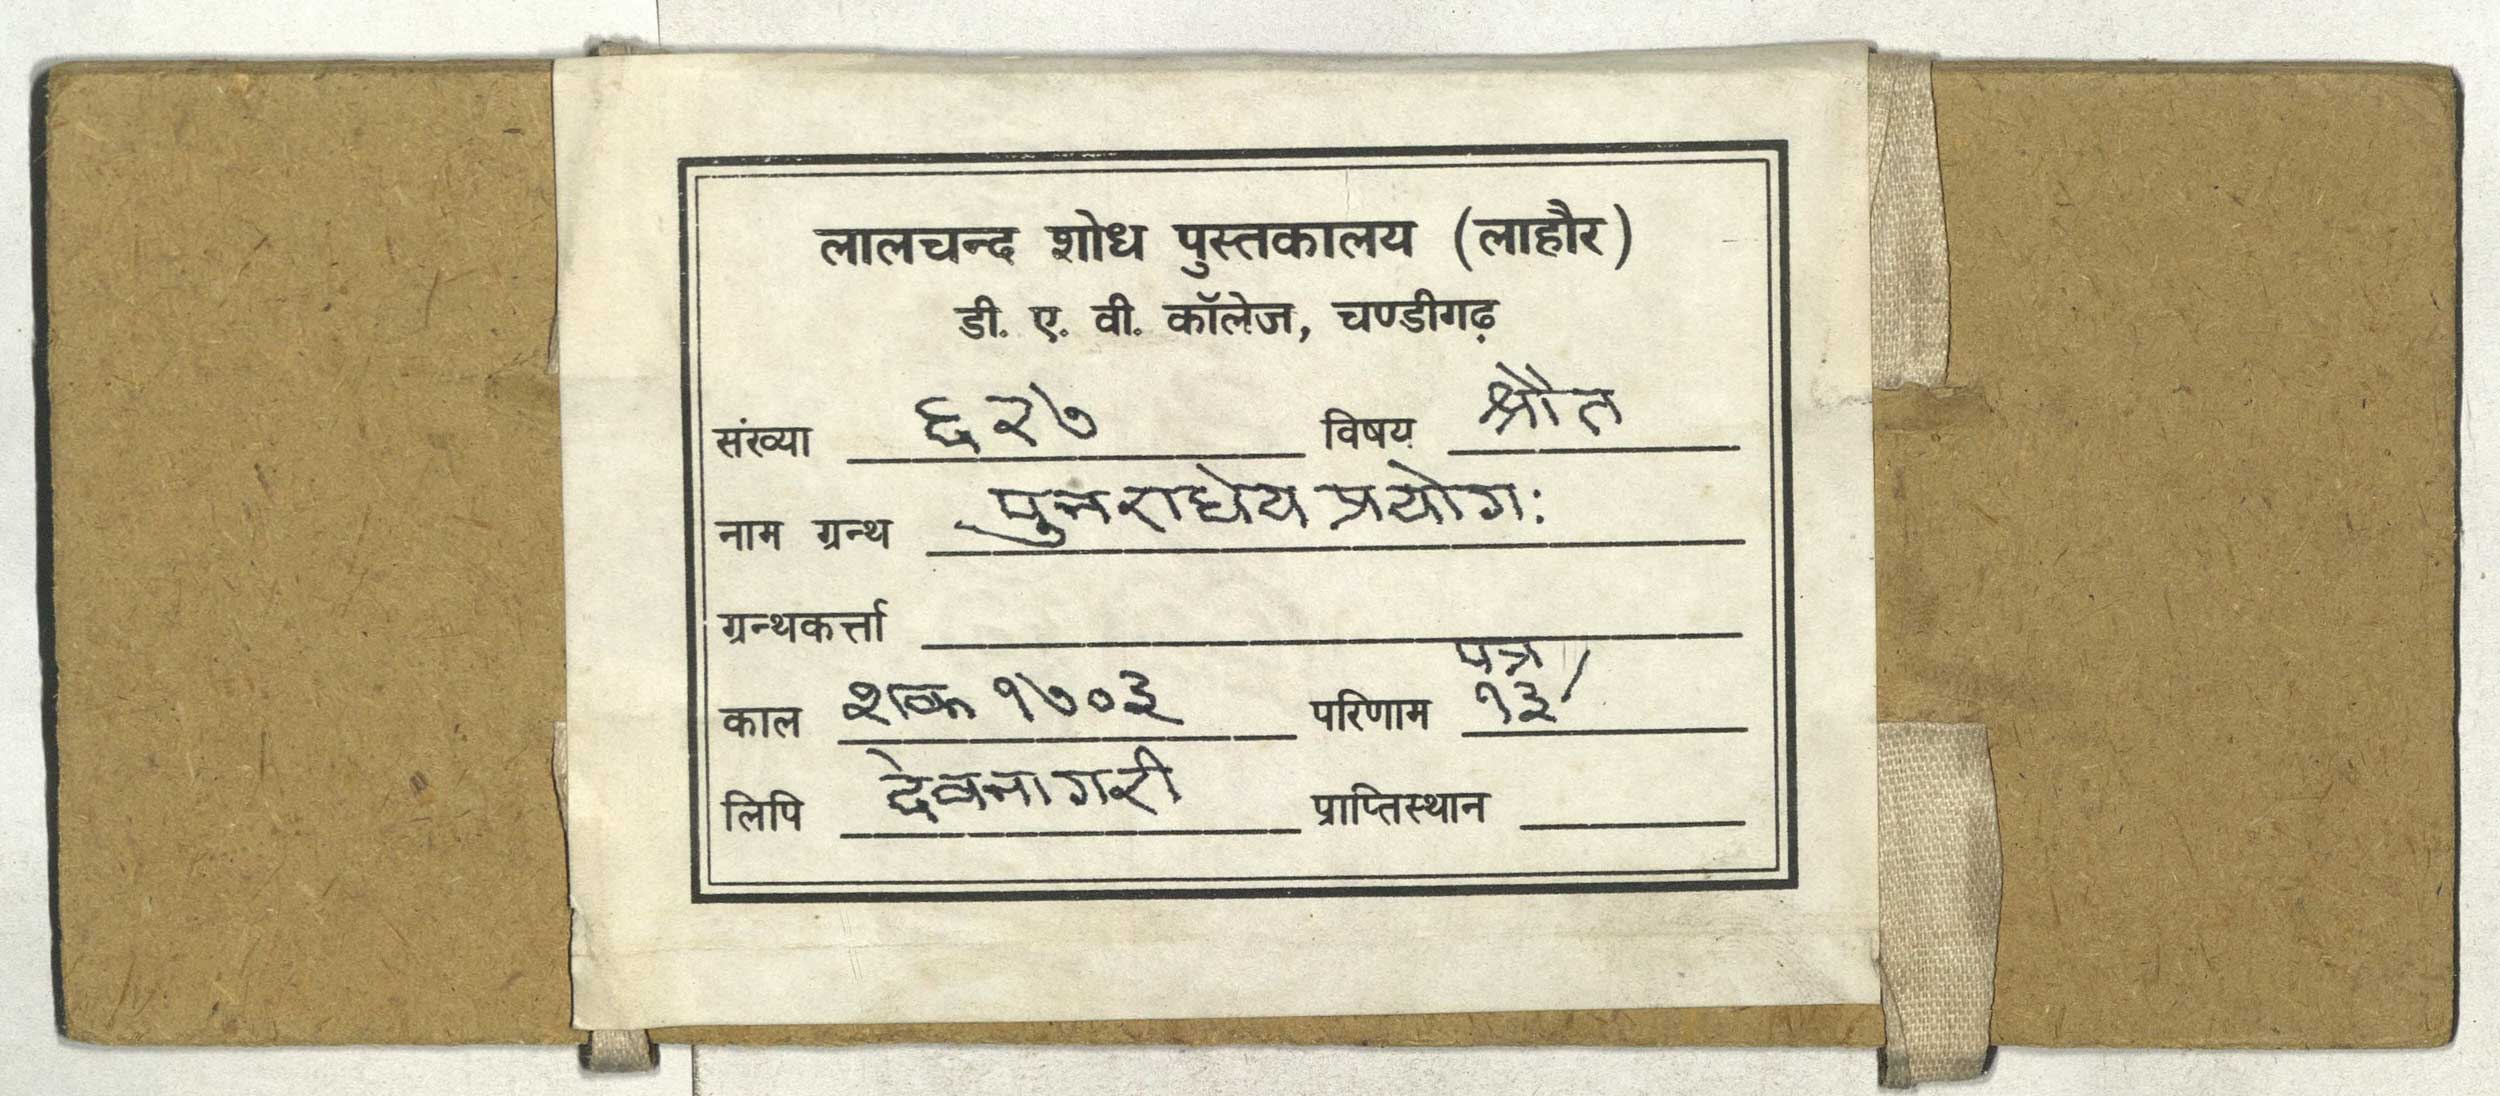 लालचन्द शोध पुस्तकालय (लाहौर)
डी. ए. वी. कॉलेज, चण्डीगढ़
संख्या ६२७ विषय श्रौत
नाम ग्रन्थ पुनराधेय प्रयोग:
ग्रन्थकर्त्ता
काल शक १७०३ परिणाम पत्र १३/
लिपि देवनागरी प्राप्तिस्थान